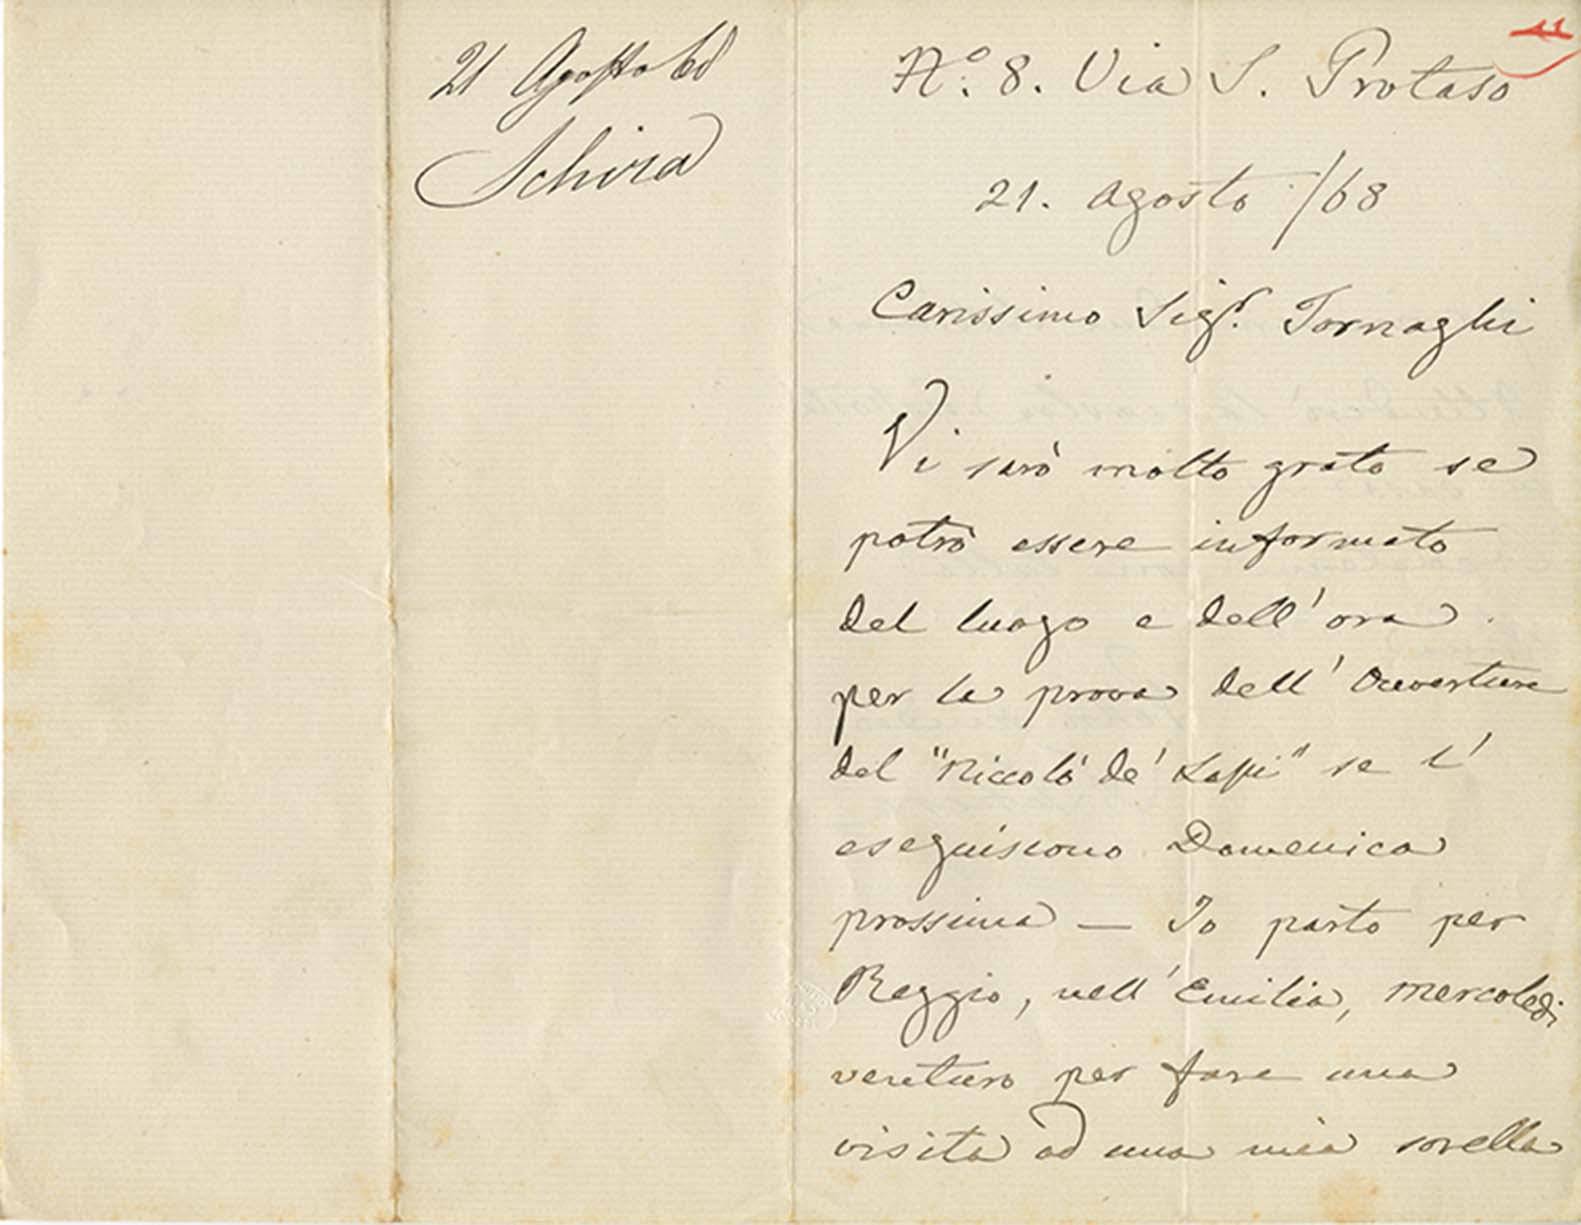 21 Agosto 68
Schira
11
Nº. 8. Via S. Protaso
21. Agosto /68
Carissimo Sigr. Tornaghi
Vi sarò molto grato se
potrò essere informato
del luogo e dell'ora
per la prova dell'Ouverture
del "Niccolò de' Lapi" se l'
eseguiscono Domenica
prossima — Io parto per
Reggio, nell'Emilia, mercoledi
venturo per fare una
visita ad una mia sorella